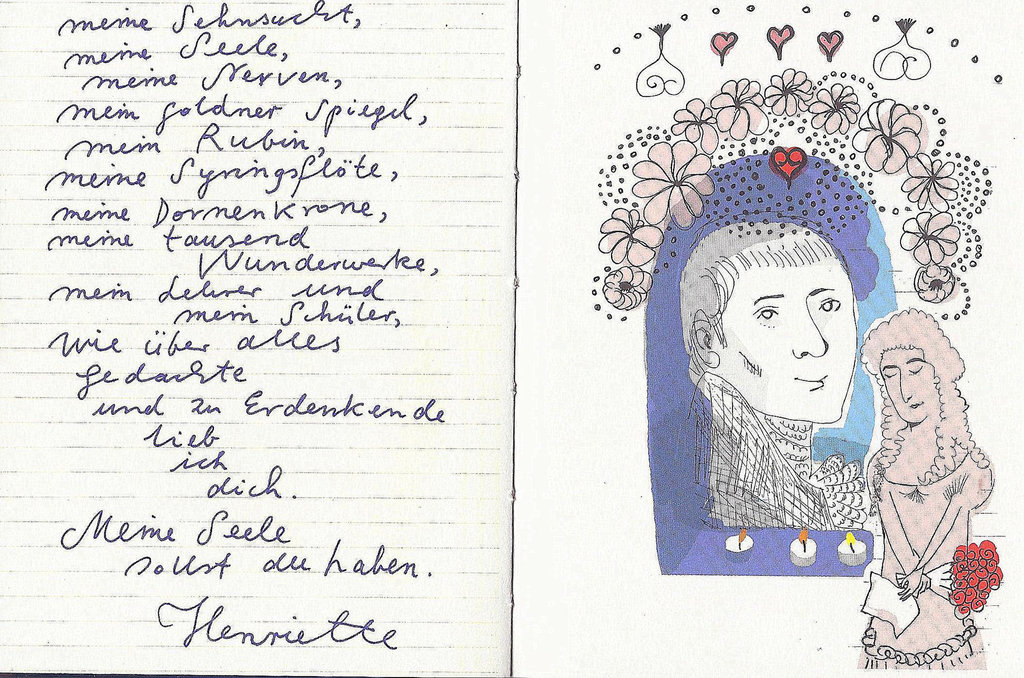 meine Sehnsucht,
meine Seele,
meine Nerven,
mein goldner Spiegel,
mein Rubin,
meine Syringsflöte,
meine Dornenkrone,
meine tausend
Wunderwerke,
mein Lehrer und
mein Schüler,
wie über alles
gedachte
und zu Erdenkende
lieb
ich
dich.
Meine Seele
sollst du haben.
Henriette